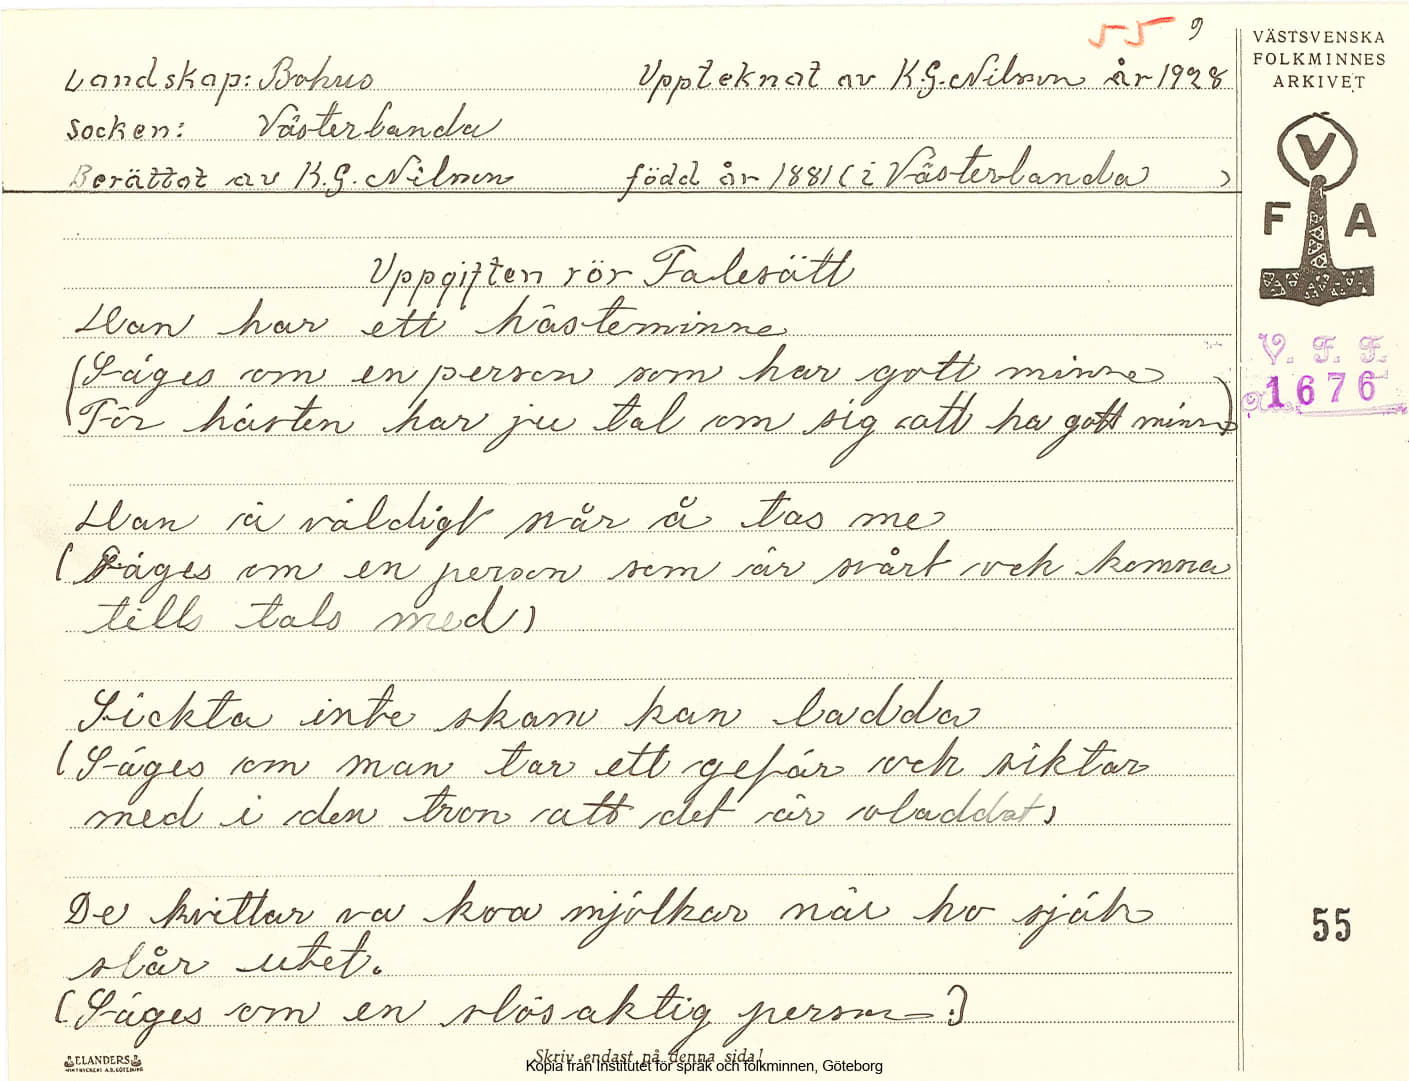 55 9
VÄSTSVENSKA
FOLKMINNES
ARKIVET
Landskap: Bohus Upptecknat av K.G. Nilsson år 1928
Socken: Västerlanda
Berättat av K.G. Nilsson född år 1881 (i Västerlanda )
V
F A
Uppgiften rör Talesätt
Han har ett hästeminne
V. F. F.
1676
(Säges om en person som har gott minne
För hästen har ju tal om sig att ha gott minne)
Han ä väldigt svår å tas me
(Säges om en person som är svårt och komma
tills tals med)
Sickta inte skam kan ladda
(Säges om man tar ett gefär och siktar
med i den tron att det är oladdat)
De kvittar va koa mjölkar när ho själv
slår utet.
(Säges om en slösaktig person.)
55
ELANDERS
BOKTRYCKERI A.B. GÖTEBORG
Skriv endast på denna sida!
Kopia från Institutet för språk och folkminnen, Göteborg